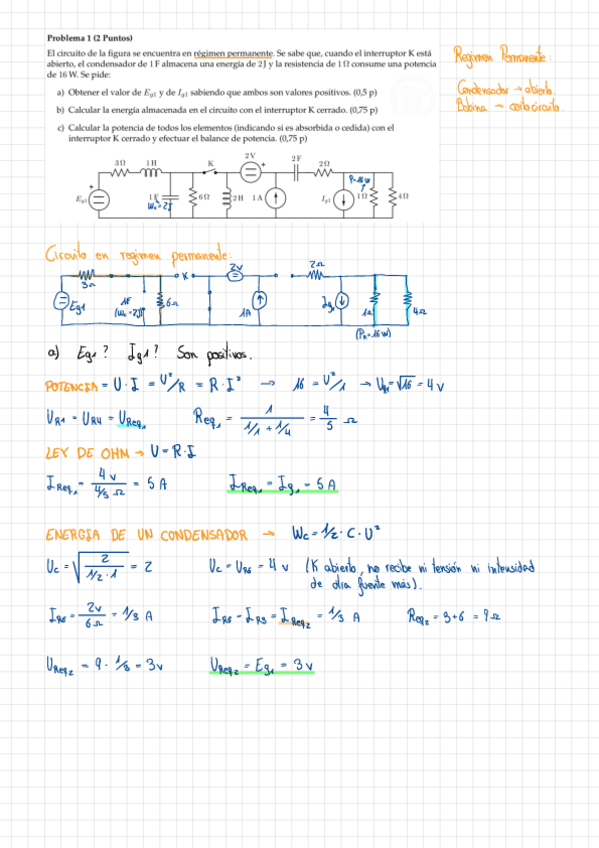 Problema 1 (2 Puntos)
El circuito de la figura se encuentra en régimen permanente. Se sabe que, cuando el interruptor K está
abierto, el condensador de 1 F almacena una energía de 2 J y la resistencia de 1 Ω consume una potencia
de 16 W. Se pide:
a) Obtener el valor de Eg1 y de Ig1 sabiendo que ambos son valores positivos. (0,5 p)
b) Calcular la energía almacenada en el circuito con el interruptor K cerrado. (0,75 p)
c) Calcular la potencia de todos los elementos (indicando si es absorbida o cedida) con el
interruptor K cerrado y efectuar el balance de potencia. (0,75 p)
Regimen Permanente:
Condensador → abierto.
Bobina → cortocircuito.
3 Ω 1 H K 2 V + 2 F 2 Ω P=16W
+ Eg1 1 F 6 Ω 2 H 1 A Ig1 1 Ω 4 Ω
Wc=2J
Circuito en regimen permanente:
3Ω K 2V 2Ω
Eg1 1F 6Ω 1A Ig1 1Ω 4Ω
(Wc=2J)
(PR=16W)
a) Eg1? Ig1? Son positivos.
POTENCIA = U·I = U²/R = R·I² → 16 = U²/1 → UR1=√16 = 4 V
UR1 = UR4 = UReq1 Req1 = 1 / (1/1 + 1/4) = 4/5 Ω
LEY DE OHM → U=R·I
IReq1 = 4 V / 4/5 Ω = 5 A IReq1 = Ig1 = 5 A
ENERGIA DE UN CONDENSADOR → Wc = 1/2 · C · U²
Uc = √(2 / 1/2·1) = 2 Uc = UR6 = 4 V (K abierto, no recibe ni tensión ni intensidad
de otra fuente más).
IR6 = 2V / 6Ω = 1/3 A IR6 = IR3 = IReq2 = 1/3 A Req2 = 3+6 = 9Ω
UReq2 = 9 · 1/3 = 3V UReq2 = Eg1 = 3 V